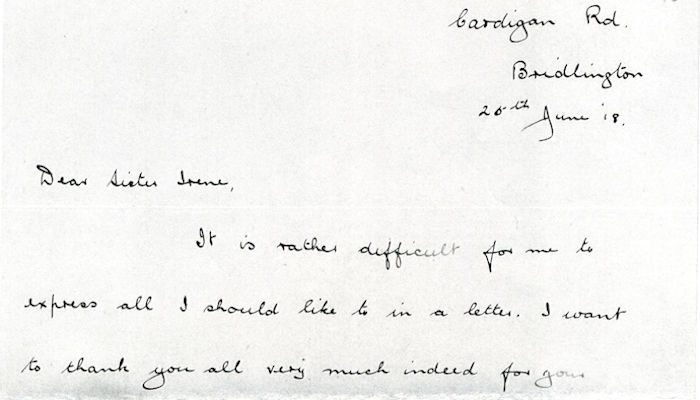 Cardigan Rd.
Bridlington
25th June '18.
Dear Sister Irene,
It is rather difficult for me to
express all I should like to in a letter. I want
to thank you all very much indeed for your